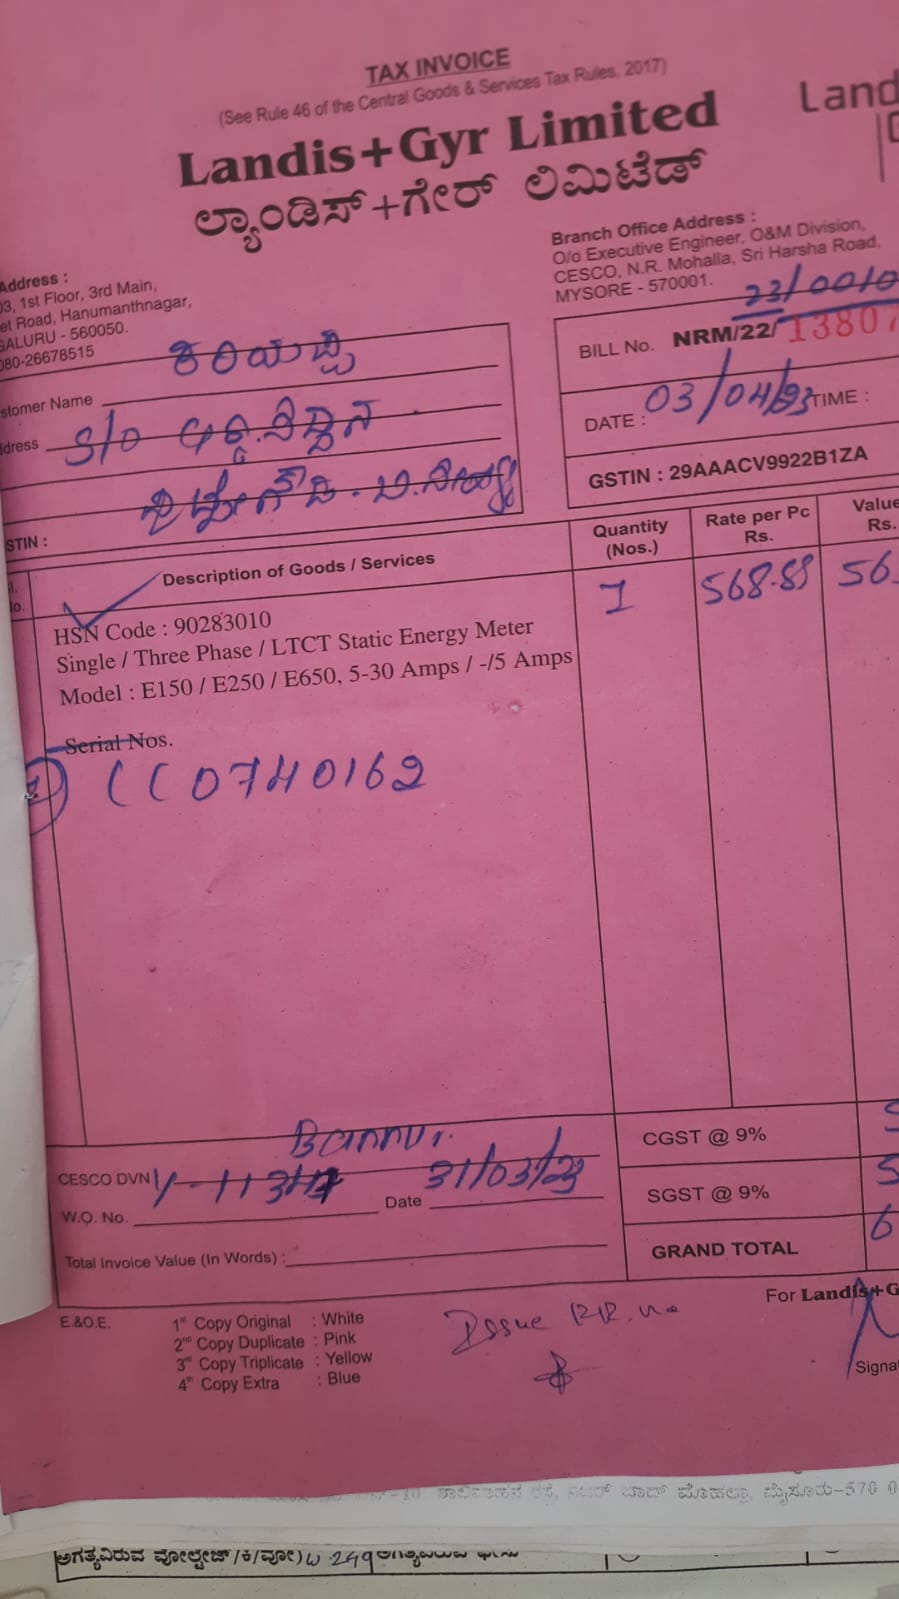 TAX INVOICE
(See Rule 46 of the Central Goods & Services Tax Rules, 2017)
Land
Landis+Gyr Limited
ಲ್ಯಾಂಡಿಸ್+ಗೇರ್ ಲಿಮಿಟೆಡ್
Address :
03, 1st Floor, 3rd Main,
et Road, Hanumanthnagar,
GALURU - 560050.
080-26678515
Branch Office Address :
O/o Executive Engineer, O&M Division,
CESCO, N.R. Mohalla, Sri Harsha Road,
MYSORE - 570001.
23/0010
BILL No. NRM/22/ 13807
DATE : 03/04/23 TIME :
GSTIN : 29AAACV9922B1ZA
stomer Name ಕರಿಯಪ್ಪ
dress S/O
STIN :
Description of Goods / Services
Quantity (Nos.)
Rate per Pc Rs.
Value Rs.
HSN Code : 90283010
Single / Three Phase / LTCT Static Energy Meter
Model : E150 / E250 / E650, 5-30 Amps / -/5 Amps
1 568.88 56
Serial Nos.
CC0740162
Bannur.
CESCO DVN
W.O. No.
Date 31/03/23
Total Invoice Value (In Words) :
CGST @ 9% 5
SGST @ 9% 5
GRAND TOTAL 6
For Landis+G
E.&O.E.
1st Copy Original : White
2nd Copy Duplicate : Pink
3rd Copy Triplicate : Yellow
4th Copy Extra : Blue
Issue RR.no
Signa
ಮೊಹಲ್ಲಾ, ಮೈಸೂರು-570 0